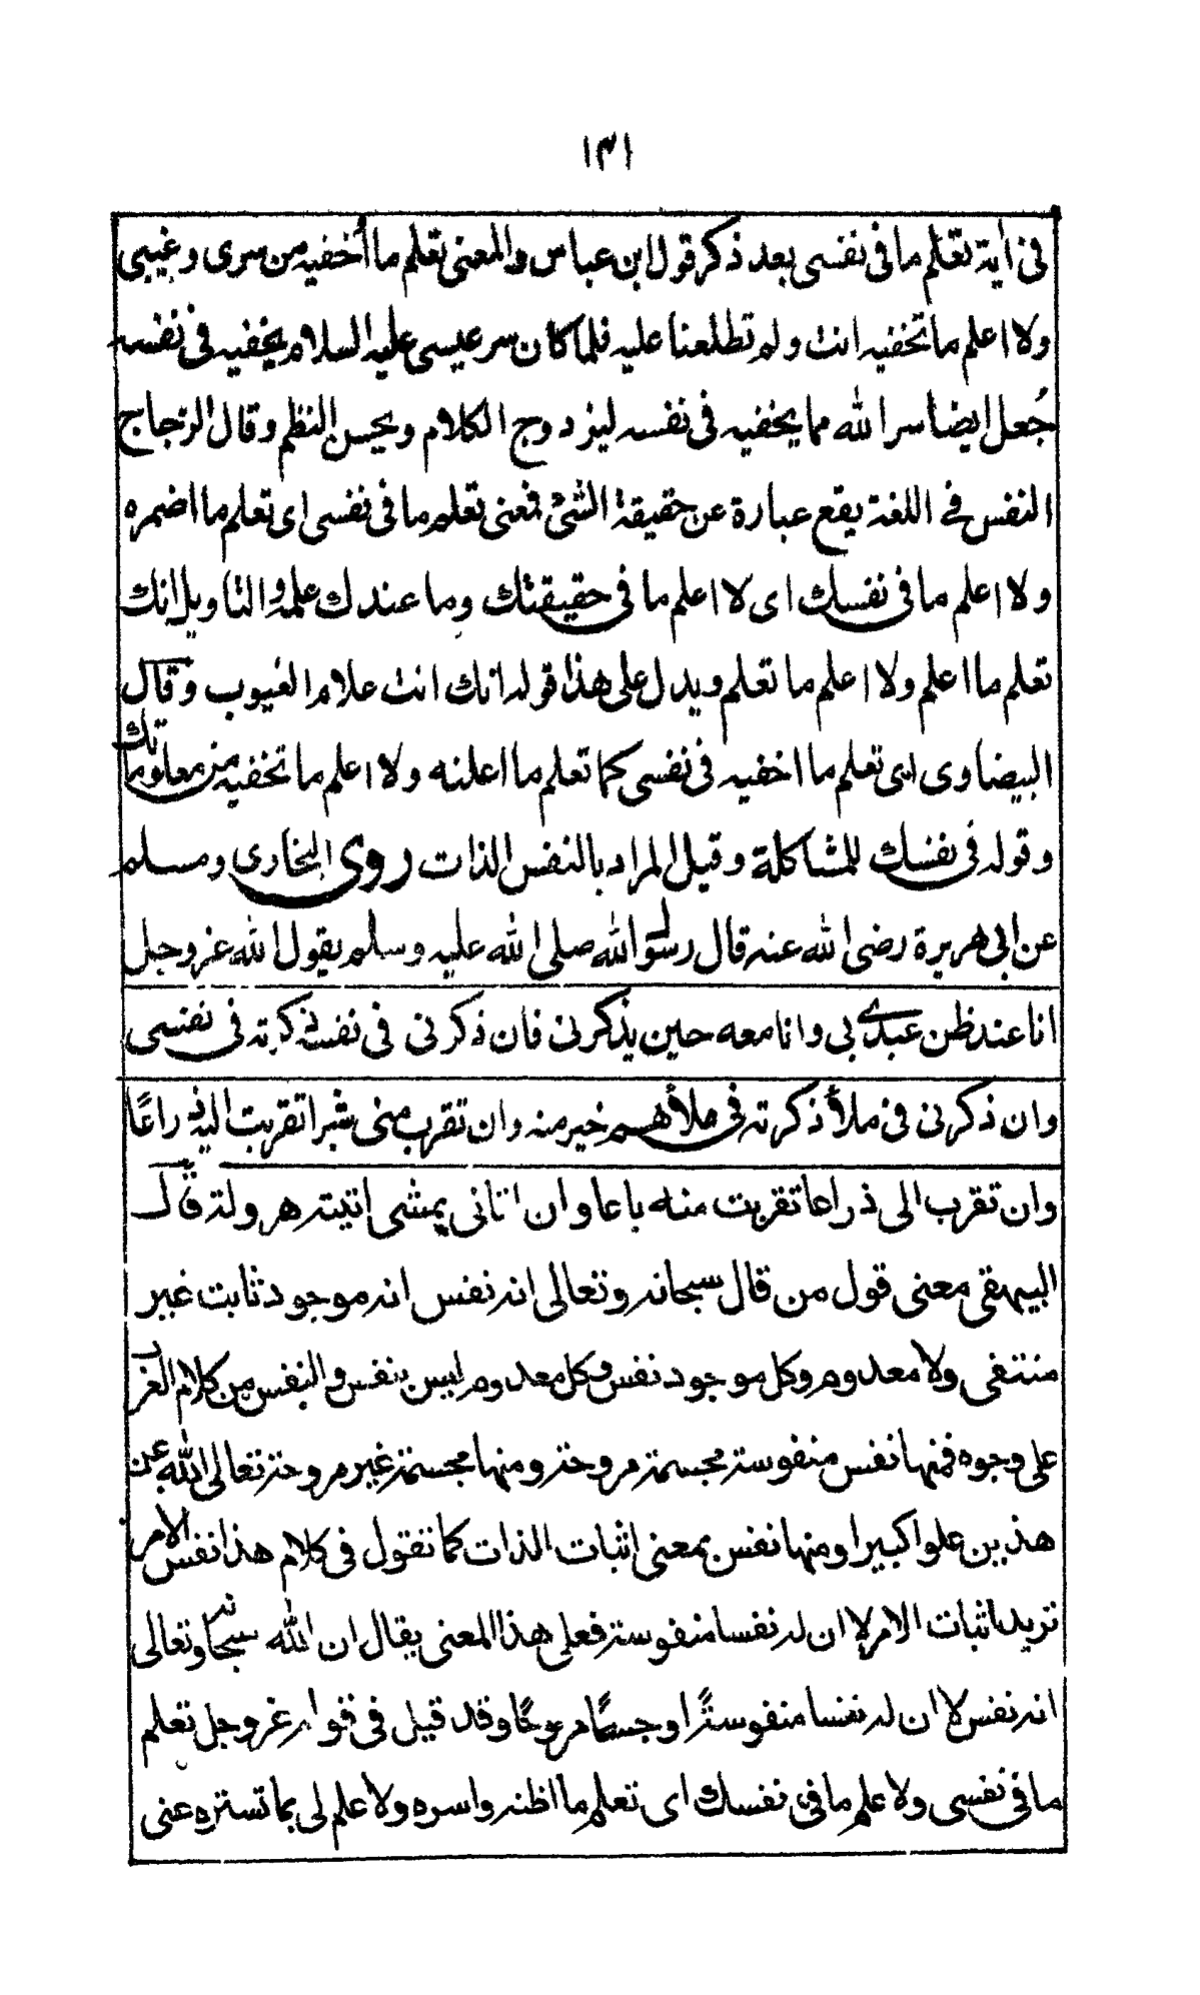 ١٣١
فى اية تعلم ما فى نفسى بعد ذكر قول ابن عباس والمعنى تعلم ما أخفيه من سرى وغيبى
ولا اعلم ما تخفيه انت ولم تطلعنا عليه فلما كان سر عيسى عليه السلام يخفيه فى نفسه
جُعل ايضا سر الله مما يخفيه فى نفسه ليزدوج الكلام ويحسن النظم وقال الزجاج
النفس فى اللغة يقع عبارة عن حقيقة الشئ فمعنى تعلم ما فى نفسى اى تعلم ما اضمره
ولا اعلم ما فى نفسك اى لا اعلم ما فى حقيقتك وما عندك علمه والتاويل انك
تعلم ما اعلم ولا اعلم ما تعلم ويدل على هذا قوله انك انت علام الغيوب وقال
البيضاوى اى تعلم ما اخفيه فى نفسى كما تعلم ما اعلنه ولا اعلم ما تخفيه من معلوماتك
وقوله فى نفسك للمشاكلة وقيل المراد بالنفس الذات روى البخارى ومسلم
عن ابى هريرة رضى الله عنه قال رسول الله صلى الله عليه وسلم يقول الله عز وجل
انا عند ظن عبدى بى وانا معه حين يذكرنى فان ذكرنى فى نفسه ذكرته فى نفسى
وان ذكرنى فى ملأ ذكرته فى ملأ هم خير منه وان تقرب منى شبرا تقربت اليه ذراعًا
وان تقرب الى ذراعا تقربت منه باعا وان اتانى يمشى اتيته هرولة قال
البيهقى معنى قول من قال سبحانه وتعالى انه نفس انه موجود ثابت غير
منتفى ولا معدوم وكل موجود نفس وكل معدوم ليس بنفس والنفس من كلام العرب
على وجوه فمنها نفس منفوسة مجسمة مروحة ومنها مجسمة غير مروحة تعالى الله عن
هذين علوا كبيرا ومنها نفس بمعنى اثبات الذات كما تقول فى كلام هذا نفس الامر
تريد اثبات الامر لا ان له نفسا منفوسة فعلى هذا المعنى يقال ان الله سبحانه وتعالى
انه نفس لا ان له نفسا منفوسةً او جسمًا مروحًا وقد قيل فى قوله عز وجل تعلم
ما فى نفسى ولا علم ما فى نفسك اى تعلم ما اظنه واسره ولا علم لى بما تستره عنى